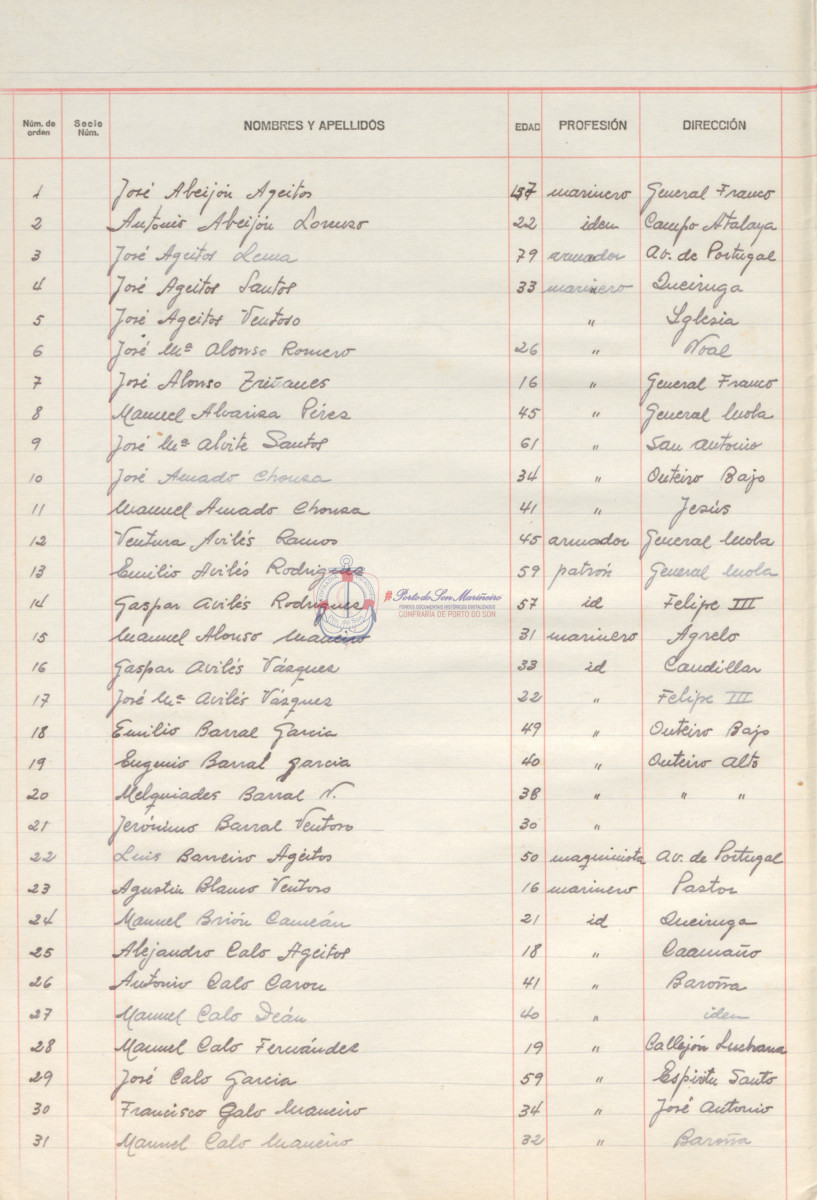 Núm. de orden Socio Núm. NOMBRES Y APELLIDOS EDAD PROFESIÓN DIRECCIÓN
1 José Abeijón Ageitos 57 marinero General Franco
2 Antonio Abeijón Lorenzo 22 iden Campo Atalaya
3 José Ageitos Lema 79 armador Av. de Portugal
4 José Ageitos Santos 33 marinero Queiruga
5 José Ageitos Ventoso " Iglesia
6 José Mª Alonso Romero 26 " Noal
7 José Alonso Triñanes 16 " General Franco
8 Manuel Alvariza Pérez 45 " General Mola
9 José Mª Alvite Santos 61 " San Antonio
10 José Amado Chousa 34 " Outeiro Bajo
11 Manuel Amado Chousa 41 " Jesús
12 Ventura Avilés Ramos 45 armador General Mola
13 Emilio Avilés Rodriguez 59 patrón General Mola
14 Gaspar Avilés Rodriguez 57 id Felipe III
15 Manuel Alonso Maneiro 31 marinero Agrelo
16 Gaspar Avilés Vásquez 33 id Caudillar
17 José Mª Avilés Vásquez 22 " Felipe III
18 Emilio Barral Garcia 49 " Outeiro Bajo
19 Eugenio Barral Garcia 40 " Outeiro Alto
20 Melquiades Barral V. 38 " " "
21 Jerónimo Barral Ventoso 30 "
22 Luis Barreiro Ageitos 50 maquinista Av. de Portugal
23 Agustin Blanco Ventoso 16 marinero Pastor
24 Manuel Brión Cameán 21 id Queiruga
25 Alejandro Calo Ageitos 18 " Caamaño
26 Antonio Calo Carou 41 " Baroña
27 Manuel Calo Deán 40 " iden
28 Manuel Calo Fernández 19 " Callejón Luchana
29 José Calo Garcia 59 " Espiritu Santo
30 Francisco Calo Maneiro 34 " José Antonio
31 Manuel Calo Maneiro 32 " Baroña
Porto do Son Mariñeiro
FONDOS DOCUMENTAIS HISTÓRICOS DIXITALIZADOS
CONFRARÍA DE PORTO DO SON